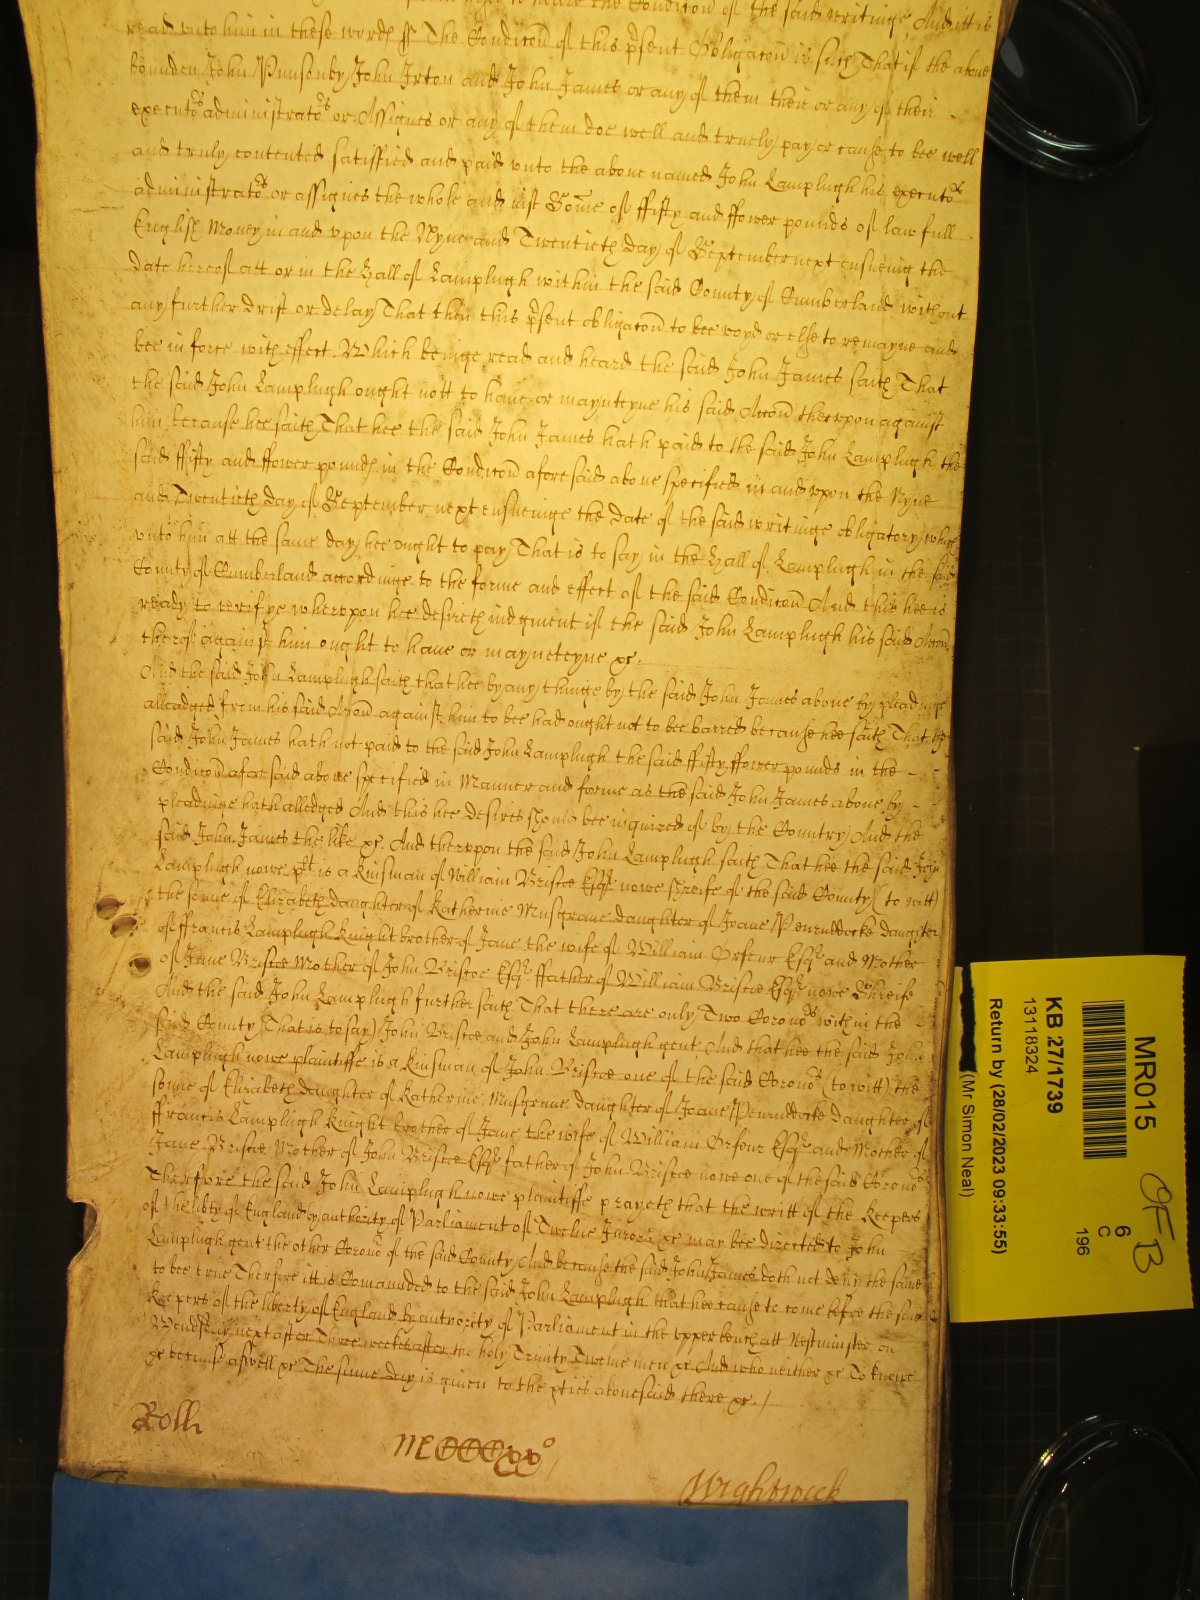 the Conditoñ of the said writinge And itt is
read unto him in these words ss The Conditoñ of this p̃sent Obligatoñ is such That if the above
bounden John Punsonby John Irton and John James or any of them their or any of their
executors administrators or Assignes or any of them doe well and truely pay or cause to bee well
and truly contented satisfied and paid unto the above named John Lamplugh his executors
administrators or assignes the whole and iust Some of ffifty and ffower pounds of lawfull
English Money in and upon the Nyne and Twentieth day of September next ensueing the
date hereof att or in the Hall of Lamplugh within the said County of Cumberland without
any further drift or delay That then this p̃sent obligatoñ to bee voyd or else to remayne and
bee in force with effect. Which beinge read and heard the said John James saith That
the said John Lamplugh ought nott to have or maynteyne his said Actoñ thereupon against
him because hee saith That hee the said John James hath paid to the said John Lamplugh the
said ffifty and ffower pounds in the Conditoñ aforesaid above specified in and upon the Nyne
and Twentieth day of September next ensueinge the date of the said writinge obligatory which
unto him att the same day hee ought to pay That is to say in the Hall of Lamplugh in the said
County of Cumberland accordinge to the forme and effect of the said Conditoñ And this hee is
ready to verifye whereupon hee desireth iudgment if the said John Lamplugh his said Actoñ
thereof against him ought to have or mayneteyne &c.
And the said John Lamplugh saith that hee by any thinge by the said John James above by pleadinge
alleadged from his said Actoñ against him to bee had ought not to bee barred because hee saith That the
said John James hath not paid to the said John Lamplugh the said ffifty ffower pounds in the
Conditoñ aforesaid above specified in Manner and forme as the said John James above by
pleadinge hath alledged And this hee desires should bee inquired of by the Country And the
said John James the like &c. And thereupon the said John Lamplugh saith That hee the said John
Lamplugh nowe plt is a kinsman of William Briscoe Esqr nowe Shreife of the said County (to witt)
the sonne of Elizabeth daughter of Katherine Musgrave daughter of Joane Penruddocke daughter
of ffrancis Lamplugh knight brother of Jane the wife of William Orfeur Esqr and Mother
of Jane Briscoe Mother of John Briscoe Esqr ffather of William Briscoe Esqr nowe Shreife
And the said John Lamplugh further saith That there are only Two Coronrs within the
said County (That is to say) John Briscoe and John Lamplugh gent And that hee the said John
Lamplugh nowe plaintiffe is a kinsman of John Briscoe one of the said Coronrs (to witt) the
sonne of Elizabeth daughter of Katherine Musgrave daughter of Joane Penruddocke daughter of
ffrancis Lamplugh knight brother of Jane the wife of William Orfeur Esqr and Mother of
Jane Briscoe Mother of John Briscoe Esqr father of John Briscoe nowe one of the said Coronrs
Therefore the said John Lamplugh nowe plaintiffe prayeth that the writt of the Keepers
of the libty of England by authority of Parliament of Twelve Jurors &c may bee directed to John
Lamplugh gent the other Coronr of the said County And because the said John James doth not deny the same
to bee true Therefore itt is Comaunded to the said John Lamplugh that hee cause to come before the said
Keepers of the liberty of England by authority of Parliament in the upper bench att Westminster on
Wensday next after Three weeks after the holy Trinity Twelve men &c And who neither &c To knowe
&c because aswell &c The same day is given to the pties abovesaid there &c. /
Roll
Wightwick
MR015
KB 27/1739
13118324
Return by (28/02/2023 09:33:55)
(Mr Simon Neal)
6
C
196
OFB